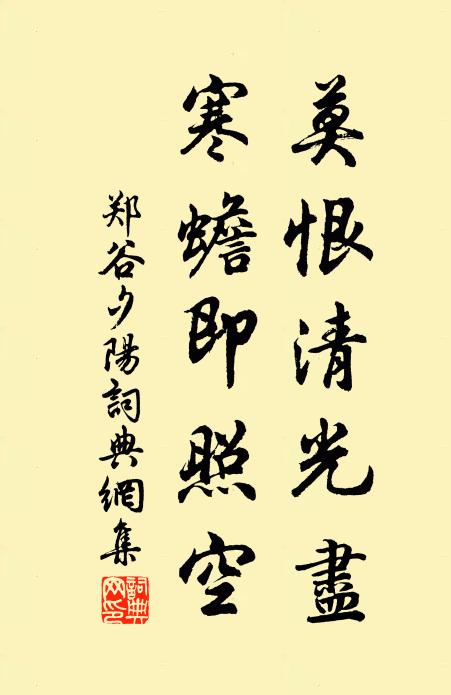 莫恨清光盡
寒蟾即照空
郑谷夕陽詞典網集
詞典網印